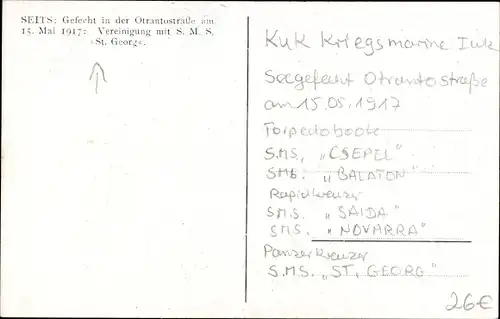 SEITS: Gefecht in der Otrantostraße am
15. Mai 1917: Vereinigung mit S. M. S.
»St. Georg«.
KuK Kriegsmarine
Seegefecht Otrantostraße
am 15.05.1917
Torpedoboote
S.M.S. „CSEPEL"
SMS. „BALATON"
Rapidkreuzer
S.M.S. „SAIDA"
SMS. „NOVARRA"
Panzerkreuzer
S.M.S. „ST. GEORG"
26€